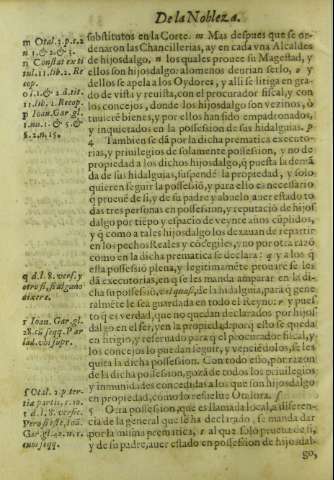 De la Nobleza.
m Otal. 3. p. c. 2
n 1. & 2. & 3.
n Constat ex ti
tul. 11. lib. 2. Re
cop.
o l. 1. & 2. d. tit.
11. lib. 2. Recop.
p Ioan. Gar. gl.
1. nu. 1. & 5. &
8. 2. n. 15.
q d. l. 8. vers. y
otro si, si alguno
dixere.
r Ioan. Gar. gl.
lad. vbi supr.
s Otal. 2. p. ter-
tiæ partis, c. 10.
5 d. l. 8. versic.
Pero si este, Ioã.
Gar. gl. 42. n. 1.
cum seqq.
substitutos en la Corte. m Mas despues que se or-
denaron las Chancillerias, ay en cada vna Alcaldes
de hijosdalgo, n los quales prouee su Magestad, y
ellos son hijosdalgo: alomenos deurian serlo, o y
dellos se apela a los Oydores, y alli se litiga en gra-
do de vista y reuista, con el procurador fiscal, y con
los concejos, donde los hijosdalgo son vezinos, ò
tuuierẽ bienes, y por ellos han sido empadronados,
y inquietados en la possession de sus hidalguias. p
4 Tambien se dã por la dicha prematica executo-
rias, y priuilegios de solamente possession, y no de
propiedad a los dichos hijosdalgo, q̃ puesta la demã
da de sus hidalguias, suspendẽ la propiedad, y solo
quieren seguir la possessiõ, y para ello es necessario
q̃ prueuẽ de si, y de su padre y abuelo auer estado to
das tres personas en possession, y reputaciõ de hijos
dalgo por tiẽpo y espacio de veynte años cũplidos,
y q̃ como a tales hijosdalgo los dexauan de repartir
en los pechos Reales y cõcegiles, y no por otra razõ
como en la dicha prematica se declara: q y a los q̃
esta possessiõ plena, y legitimamẽte prouarẽ se les
dã executorias, en q̃ se les manda amparar en la di-
cha su possessiõ, vel quasi, de la hidalguia, para q̃ gene
ralmẽte le sea guardada en todo el Reyno: r y pues
to q̃ es verdad, que no quedan declarados por hijos
dalgo en el ser, y en la propiedad: porq̃ ello se queda
en litigio, y reseruado para q̃ el procurador fiscal, y
los concejos lo puedan seguir, y venciẽdolos, se les
quita la dicha possession. Con todo ello, por razõn
de la dicha possession, goza de todos los priuilegios
y inmunidades concedidas a los que son hijosdalgo
en propiedad, como lo resuelue Otalora. s
5 Otra possession, que es llamada local, a diferen-
cia de la general que se ha declarado, se manda dar
por la misma prematica, t al que solo prueua de si,
y de su padre, auer estado en possession de hijosdal-
go,